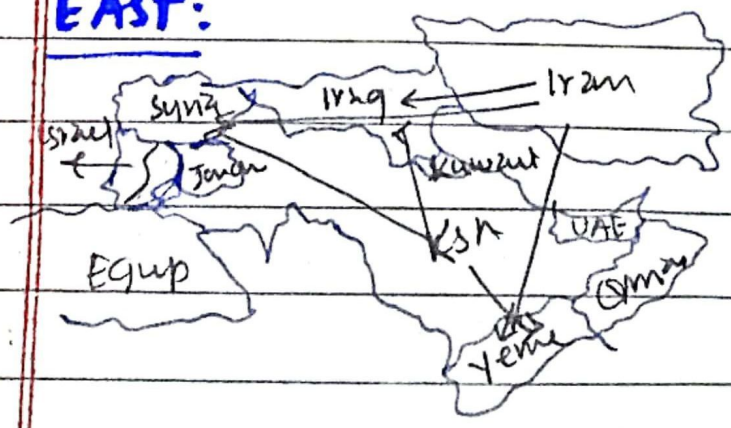 EAST:
Syria Iraq Iran
Israel Jordan Kuwait
KSA UAE
Egyp Oman
Yeme